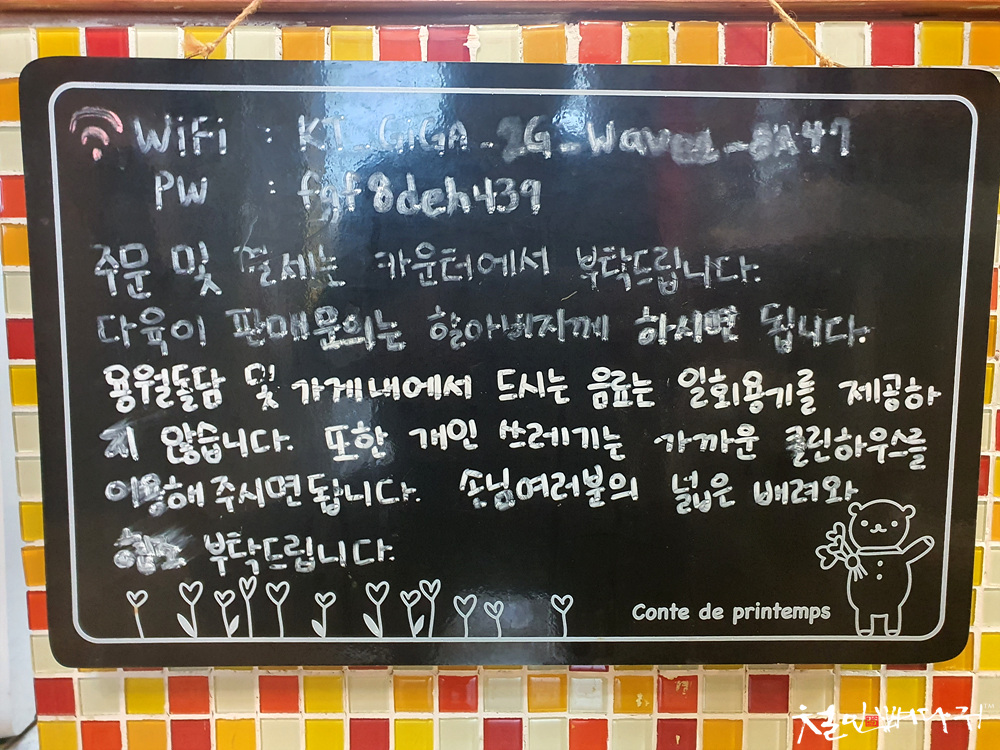 WiFi : KT_GIGA_2G_Wave2_8A47
PW : fgf8deh439
주문 및 결제는 카운터에서 부탁드립니다.
다육이 판매문의는 할아버지께 하시면 됩니다.
용월돌담 및 가게내에서 드시는 음료는 일회용기를 제공하
지 않습니다. 또한 개인 쓰레기는 가까운 클린하우스를
이용해 주시면 됩니다. 손님여러분의 넓은 배려와
협조 부탁드립니다.
Conte de printemps